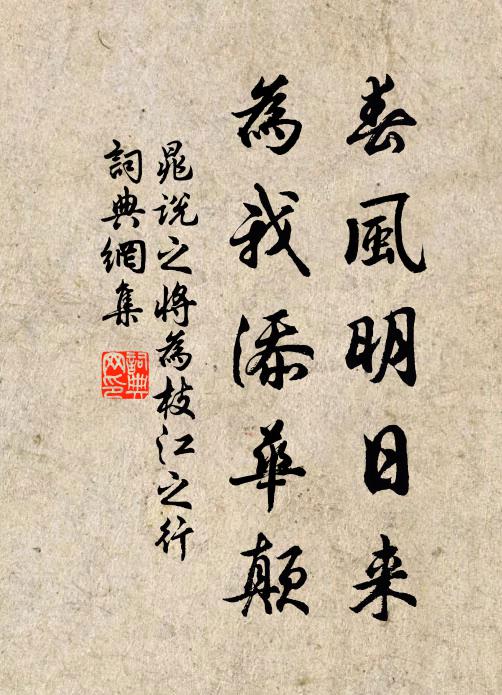 春風明日来
為我添華顛
晁説之將為枝江之行
詞典網集
詞典
网印